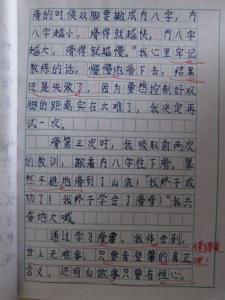 滑的时候双脚要撇成内八字，内
八字越小，滑得就越快，内八字
越大，滑得就越慢。”我心里牢记
教练的话，慢慢地滑下去，结果
还是失败了，因为要想控制好双
腿的距离实在太难了，我决定再
试一次。
滑第三次时，我吸取前两次
的教训，撇着内八字往下滑，果
然平稳地滑到了山底！“我终于成
功了！我终于学会了滑雪！”我兴
奋地大喊。
通过学习滑雪，我体会到，
世上无难事，只要肯登攀的真正
含义，还明白做事只要有恒心，